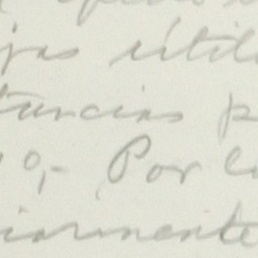 jas útil
tancias p
0,- Por lo
iormente